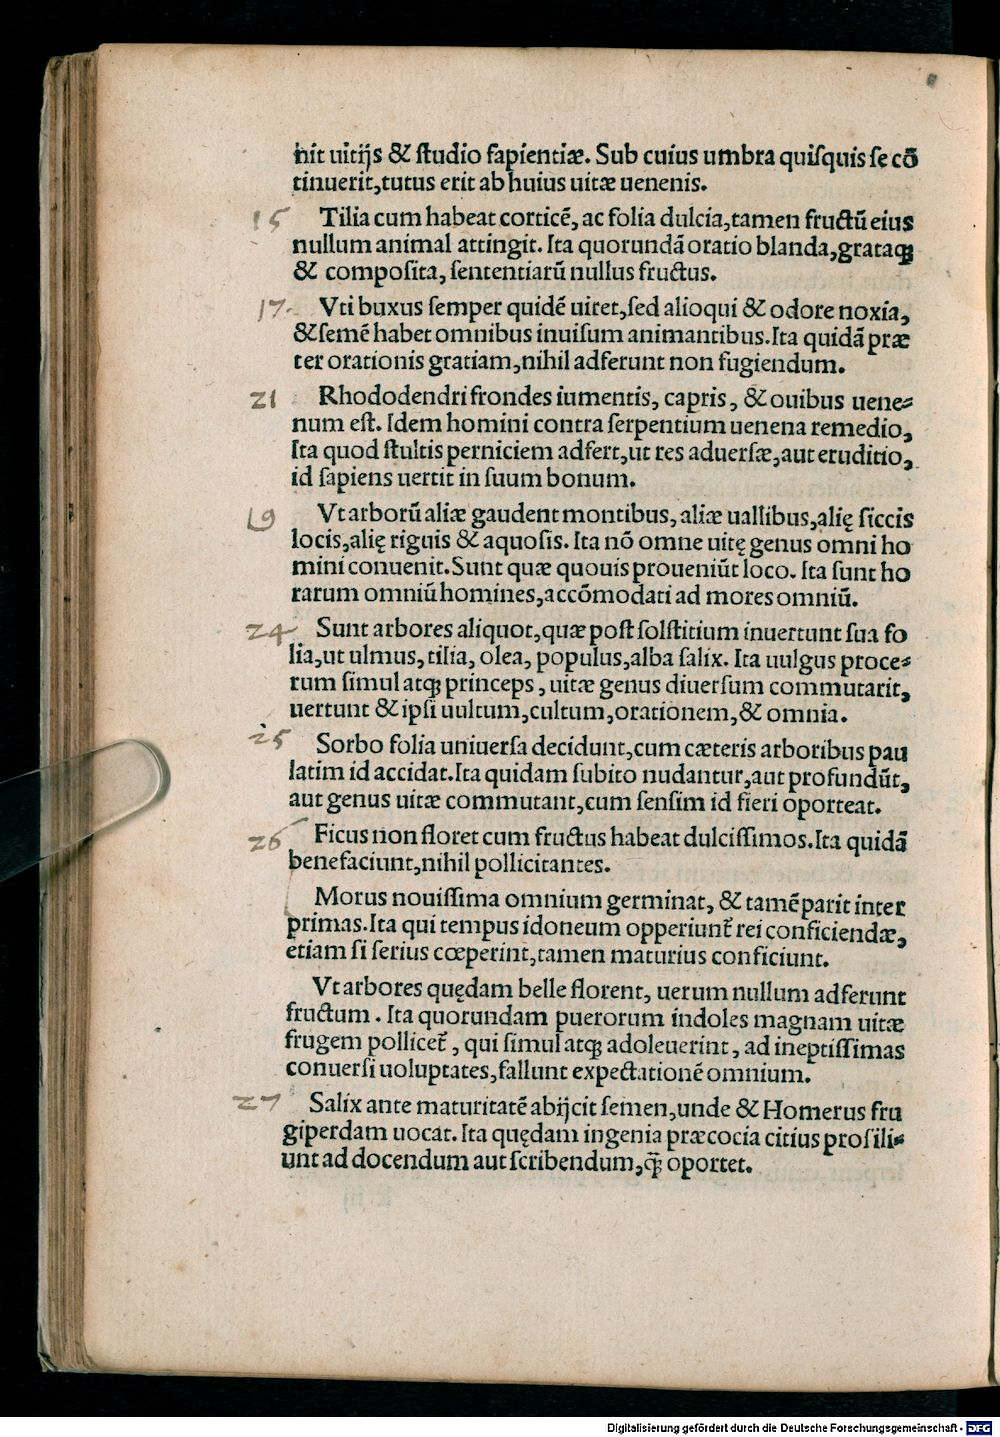 nit uitijs & ſtudio ſapientiæ. Sub cuius umbra quiſquis ſe cõ
tinuerit,tutus erit ab huius uitæ uenenis.
15
Tilia cum habeat corticē, ac folia dulcia,tamen fructũ eius
nullum animal attingit. Ita quorundã oratio blanda,grataqꝫ
& compoſita, ſententiarũ nullus fructus.
17
Vti buxus ſemper quidē uiret,ſed alioqui & odore noxia,
& ſemē habet omnibus inuiſum animantibus.Ita quidã præ
ter orationis gratiam,nihil adferunt non fugiendum.
21
Rhododendri frondes iumentis, capris, & ouibus uene-
num eſt. Idem homini contra ſerpentium uenena remedio,
Ita quod ſtultis perniciem adfert,ut res aduerſæ,aut eruditio,
id ſapiens uertit in ſuum bonum.
19
Vt arborũ aliæ gaudent montibus, aliæ uallibus,alię ſiccis
locis,alię riguis & aquoſis. Ita nõ omne uitę genus omni ho
mini conuenit.Sunt quæ quouis proueniũt loco. Ita ſunt ho
rarum omniũ homines,accõmodati ad mores omniũ.
24
Sunt arbores aliquot,quæ poſt ſolſtitium inuertunt ſua fo
lia,ut ulmus, tilia, olea, populus,alba ſalix. Ita uulgus proce-
rum ſimul atqꝫ princeps, uitæ genus diuerſum commutarit,
uertunt & ipſi uultum,cultum,orationem,& omnia.
25
Sorbo folia uniuerſa decidunt,cum cæteris arboribus pau
latim id accidat.Ita quidam ſubito nudantur,aut profundũt,
aut genus uitæ commutant,cum ſenſim id fieri oporteat.
26
Ficus non floret cum fructus habeat dulciſſimos.Ita quidã
benefaciunt,nihil pollicitantes.
Morus nouiſſima omnium germinat, & tamē parit inter
primas.Ita qui tempus idoneum opperiunt᷑ rei conficiendæ,
etiam ſi ſerius cœperint,tamen maturius conficiunt.
Vt arbores quędam belle florent, uerum nullum adferunt
fructum. Ita quorundam puerorum indoles magnam uitæ
frugem pollicet᷑, qui ſimul atqꝫ adoleuerint, ad ineptiſſimas
conuerſi uoluptates,fallunt expectationē omnium.
27
Salix ante maturitatē abijcit ſemen,unde & Homerus fru
giperdam uocat. Ita quędam ingenia præcocia citius proſili-
unt ad docendum aut ſcribendum,q̃ꝫ oportet.
Digitalisierung gefördert durch die Deutsche Forschungsgemeinschaft - DFG